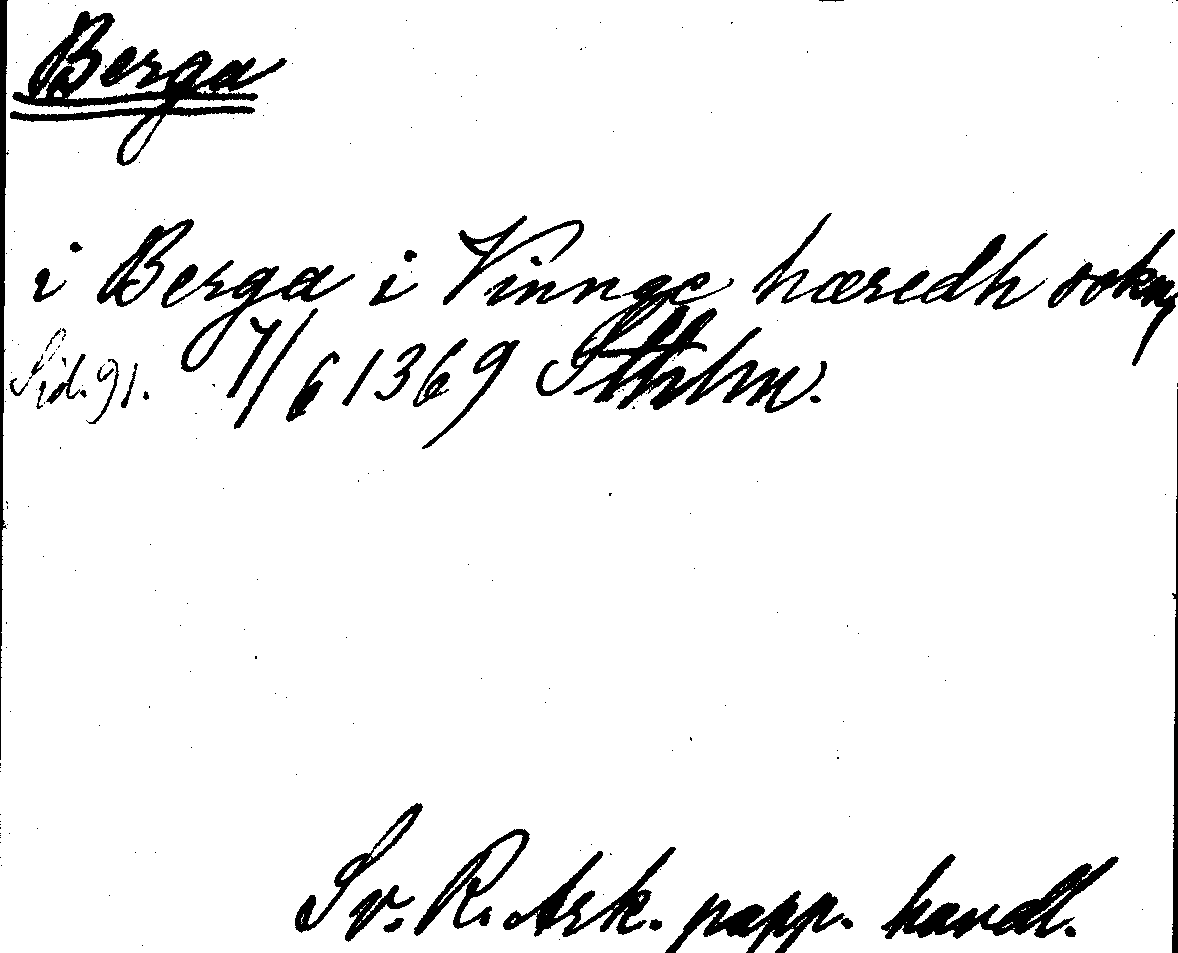 Berga
i Berga i Vinnge hæredh sokn,
Sid. 91. 7/6 1369 Sthlm.
Sv. R. Ark. papp. handl.